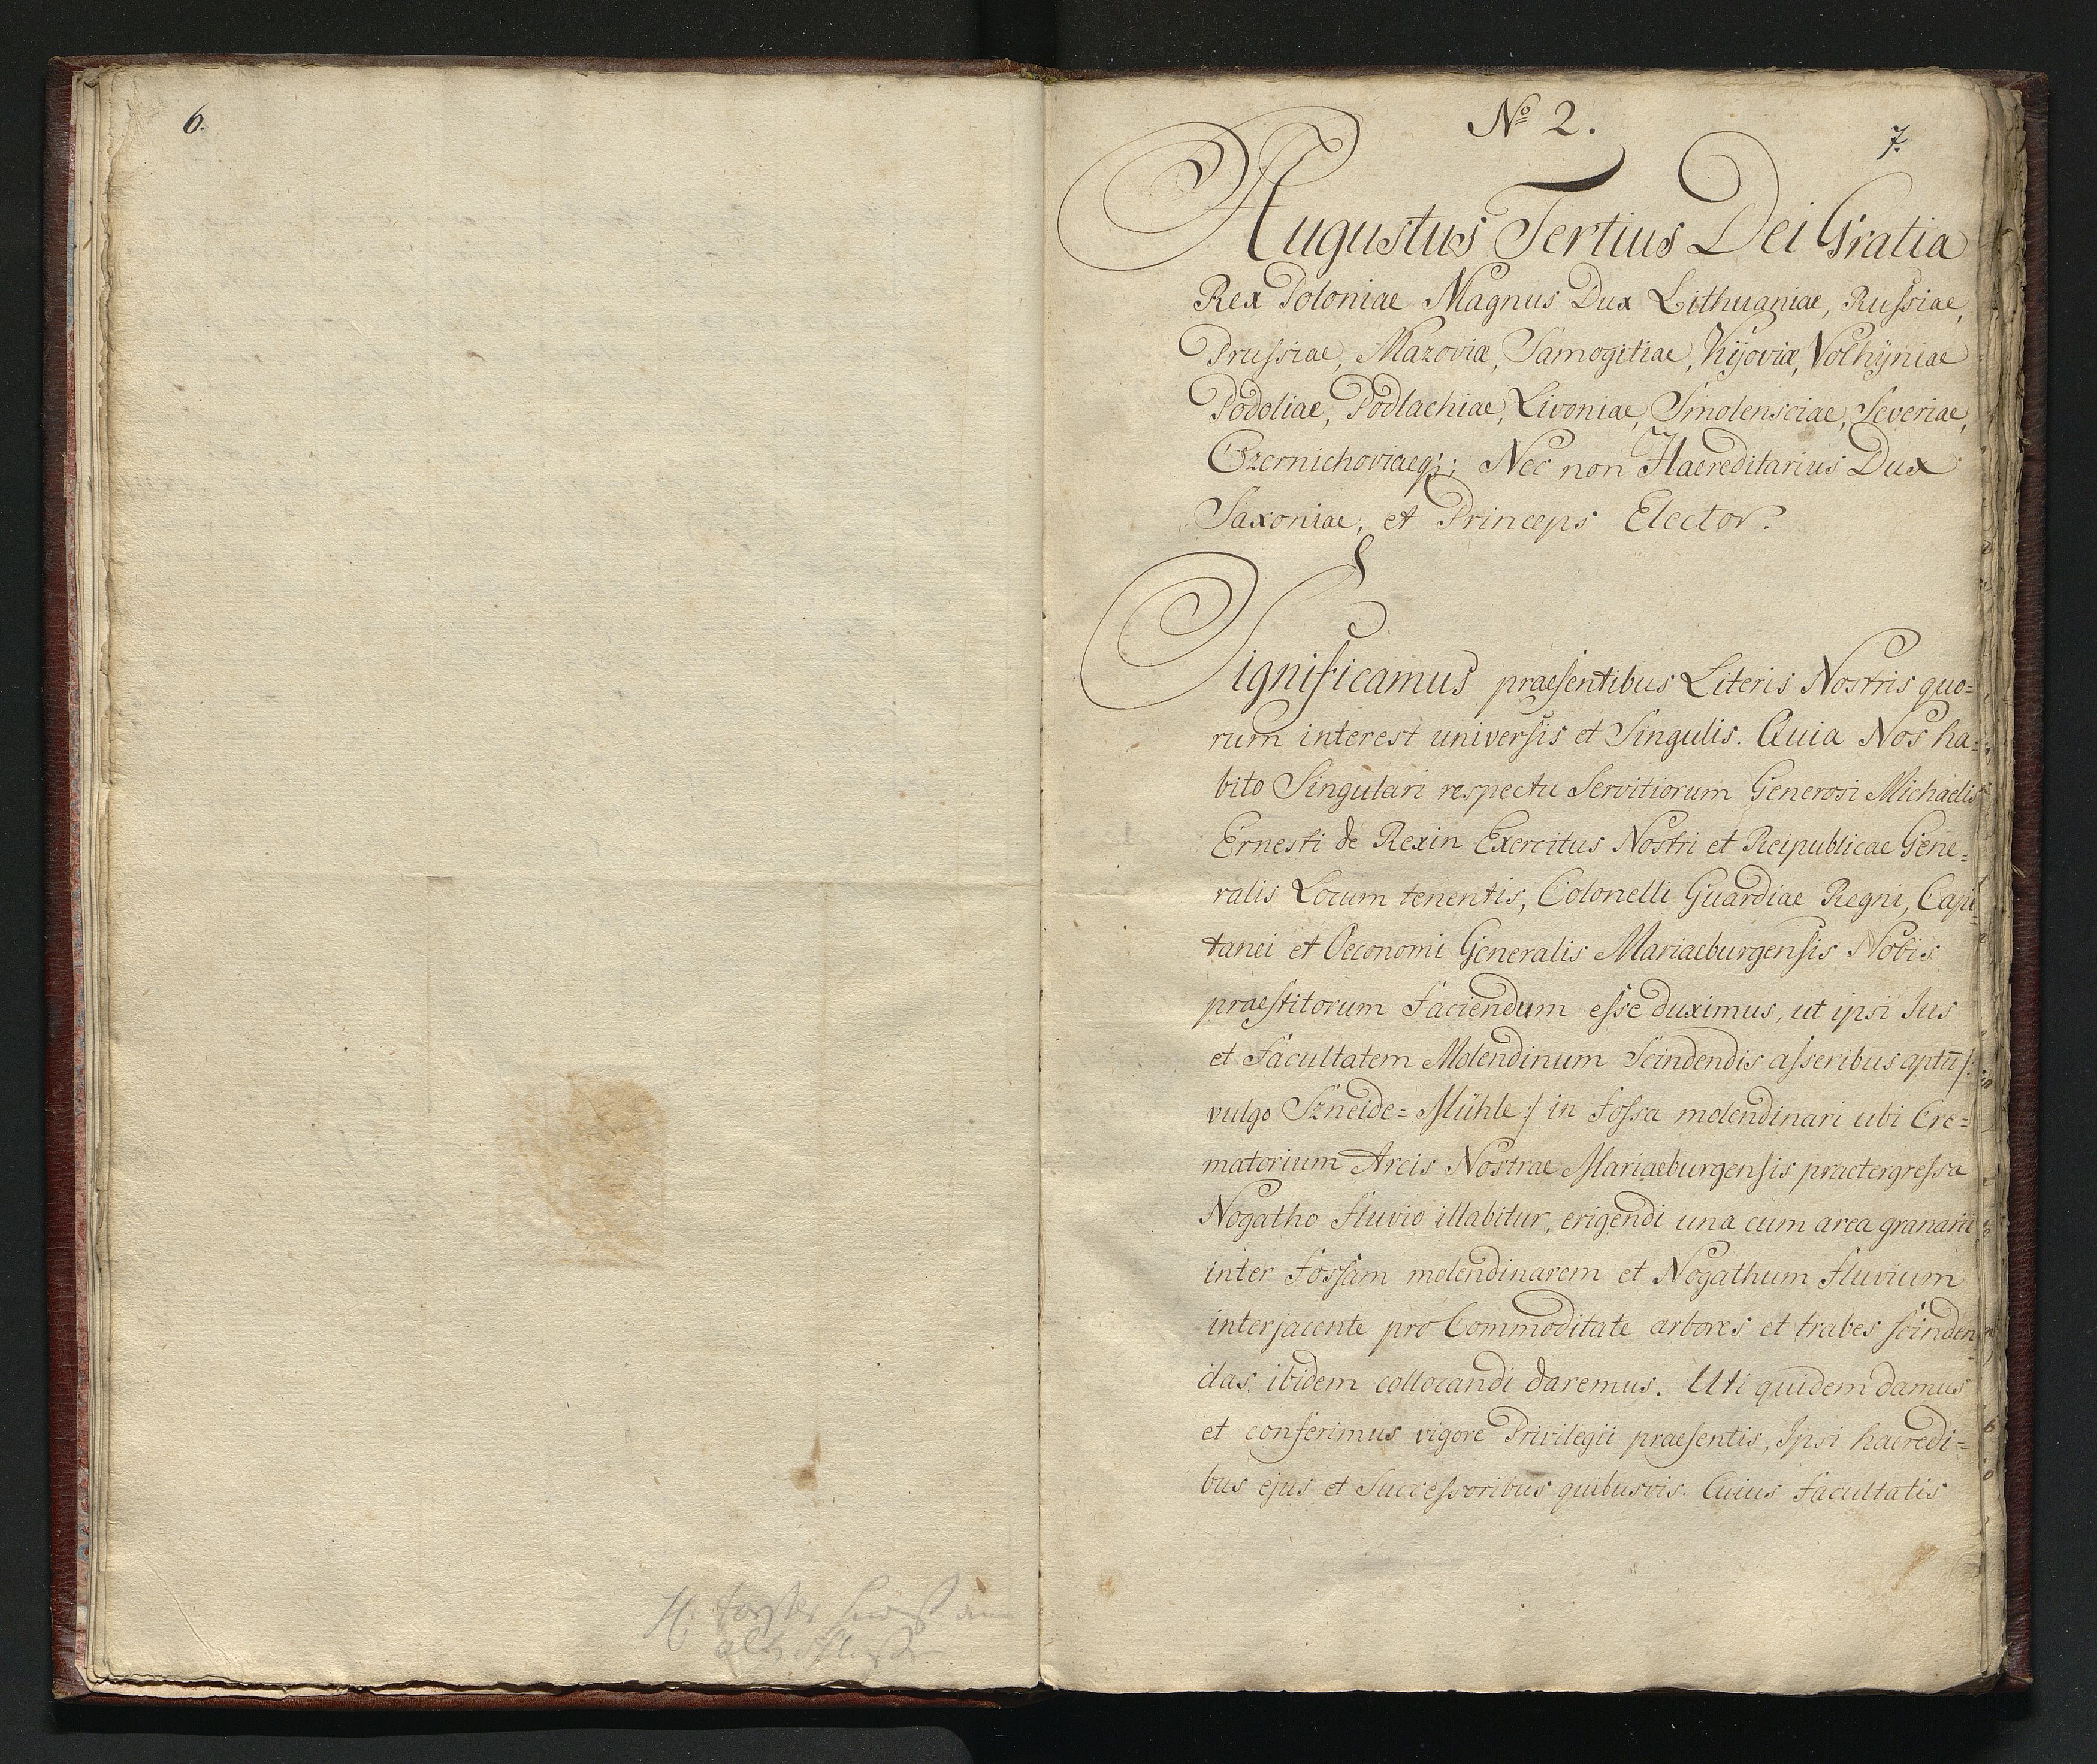 6.
No 2.
7.
Augustus Tertius Dei Gratia
Rex Poloniae Magnus Dux Lithuaniae, Russiae,
Prussiae, Mazoviæ, Samogitiae, Kijoviæ, Volhÿniae
Podoliae, Podlachiae, Livoniae, Smolensciae, Severiae,
Czernichoviaeq;; Nec non Haereditarius Dux
Saxoniae, et Princeps Elector.
Significamus praesentibus Literis Nostris quo=
rum interest universis et Singulis. Quia Nos ha=
bito Singulari respectu Servitiorum Generosi Michaelis
Ernesti de Rexin Exercitus Nostri et Reipublicae Gene=
ralis Locum tenentis, Colonelli Guardiae Regni, Capi=
tanei et Oeconomi Generalis Mariaeburgensis Nobis
praestitorum faciendum esse duximus, ut ipsi Jus
et facultatem Molendinum Scindendis asseribus aptū /:
vulgo Szneide=Mühle :/ in fossa molendinari ubi Cre=
matorium Arcis Nostrae Mariaeburgensis praetergressa
Nogatho fluvio illabitur, erigendi una cum area granarii
inter fossam molendinarem et Nogathum fluvium
interjacente pro Commoditate arbores et trabes scinden=
das ibidem collocandi daremus. Uti quidem damus
et conferimus vigore Privilegii praesentis, Ipsi haeredi=
bus ejus et Successoribus quibusvis. Cuius facultatis